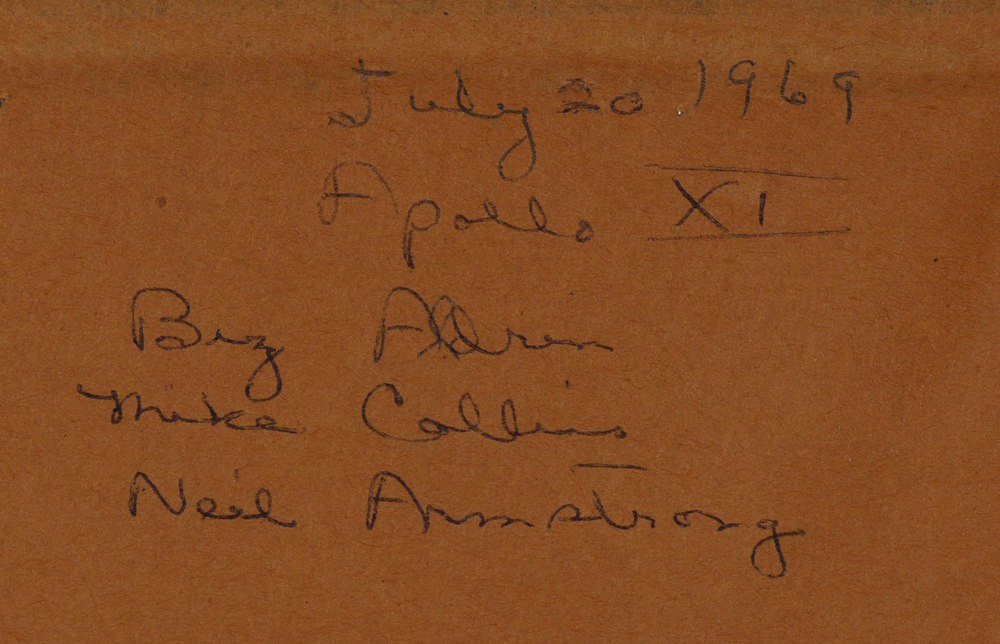 July 20 1969
Apollo XI
Buz Aldrin
Mike Collins
Neil Armstrong